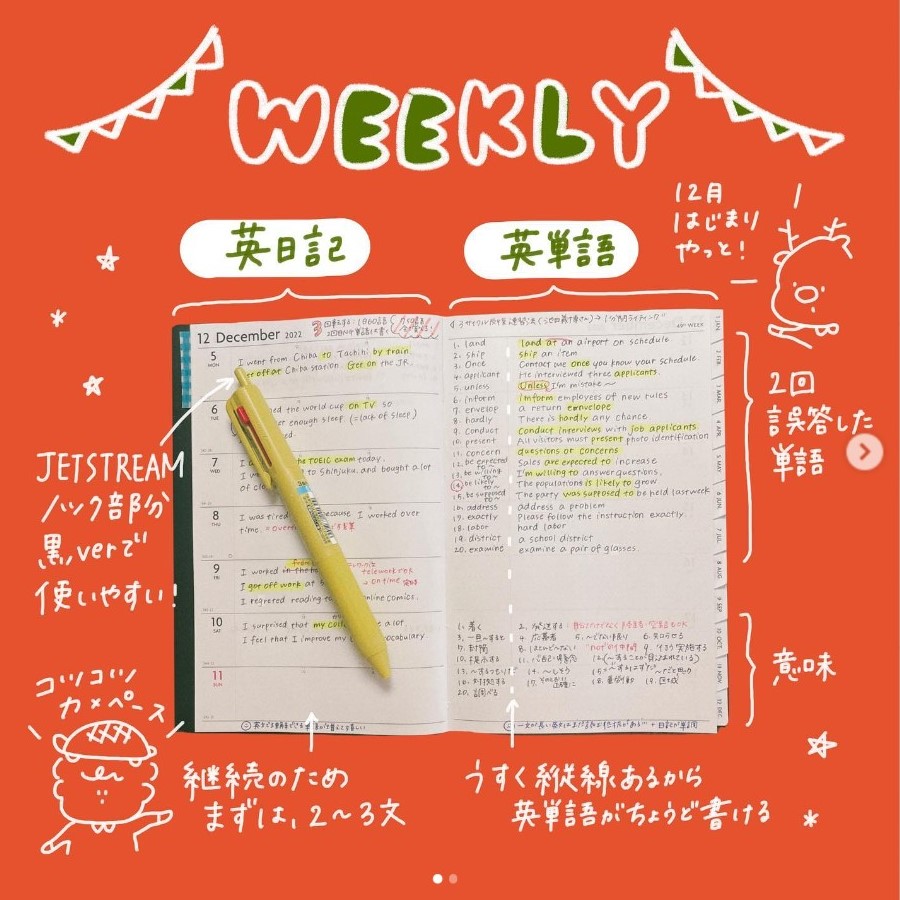 WEEKLY
12月
はじまり
やっと!
英日記
英単語
12 December 2022
49th WEEK
5
MON
I went from Chiba to Tachihi by train.
off at Chiba station. Get on the JR.
6
TUE
the world cup on TV so
enough sleep. (=lack of sleep)
7
WED
the TOEIC exam today.
to Shinjuku, and bought a lot
of
8
THU
I was tired because I worked over
time.
9
FRI
I worked in the
telework
I got off work at
on time
I regretted reading online comics.
10
SAT
I surprised that my a lot
I feel that I improve my vocabulary
11
SUN
1. land land at an airport on schedule.
2. ship ship an item
3. Once Contact me once you know your schedule.
4. applicant He interviewed three applicants.
5. unless Unless I'm mistake~
6. inform imform employees of new rules
7. envelop a return emvelope
8. hardly There is hardly any chance
9. conduct Conduct interviews with job applicants
10. present All visitors must present photo identification
11. concern questions or concerns
12. be expected to~ Sales are expected to increase
13. be willing to~ I'm willing to answer questions.
14. be likely to~ The populations is likely to grow
15. be supposed to~ The party was supposed to be held last week
16. address address a problem
17. exactly Please follow the instruction exactly
18. labor hard labor
19. district a school district
20. examine examine a pair of glasses.
1. 着く
2. 発送する
3. 一旦~すると
4. 応募者
5. ~しない限り
6. 知らせる
7. 封筒
8. ほとんど~ない
10. 提示する
13. ~するつもり
14. ~しそう
16. 対処する
17. 正確に
18. 労働
19. 地域
20. 調べる
1 JAN
2 FEB
3 MAR
4 APR
5 MAY
6 JUN
7 JUL
8 AUG
9 SEP
10 OCT
11 NOV
12 DEC
2回
誤答した
単語
意味
JETSTREAM
ノック部分
黒verで
使いやすい!
コツコツ
カメペース
継続のため
まずは、2〜3文
うすく縦線あるから
英単語がちょうど書ける